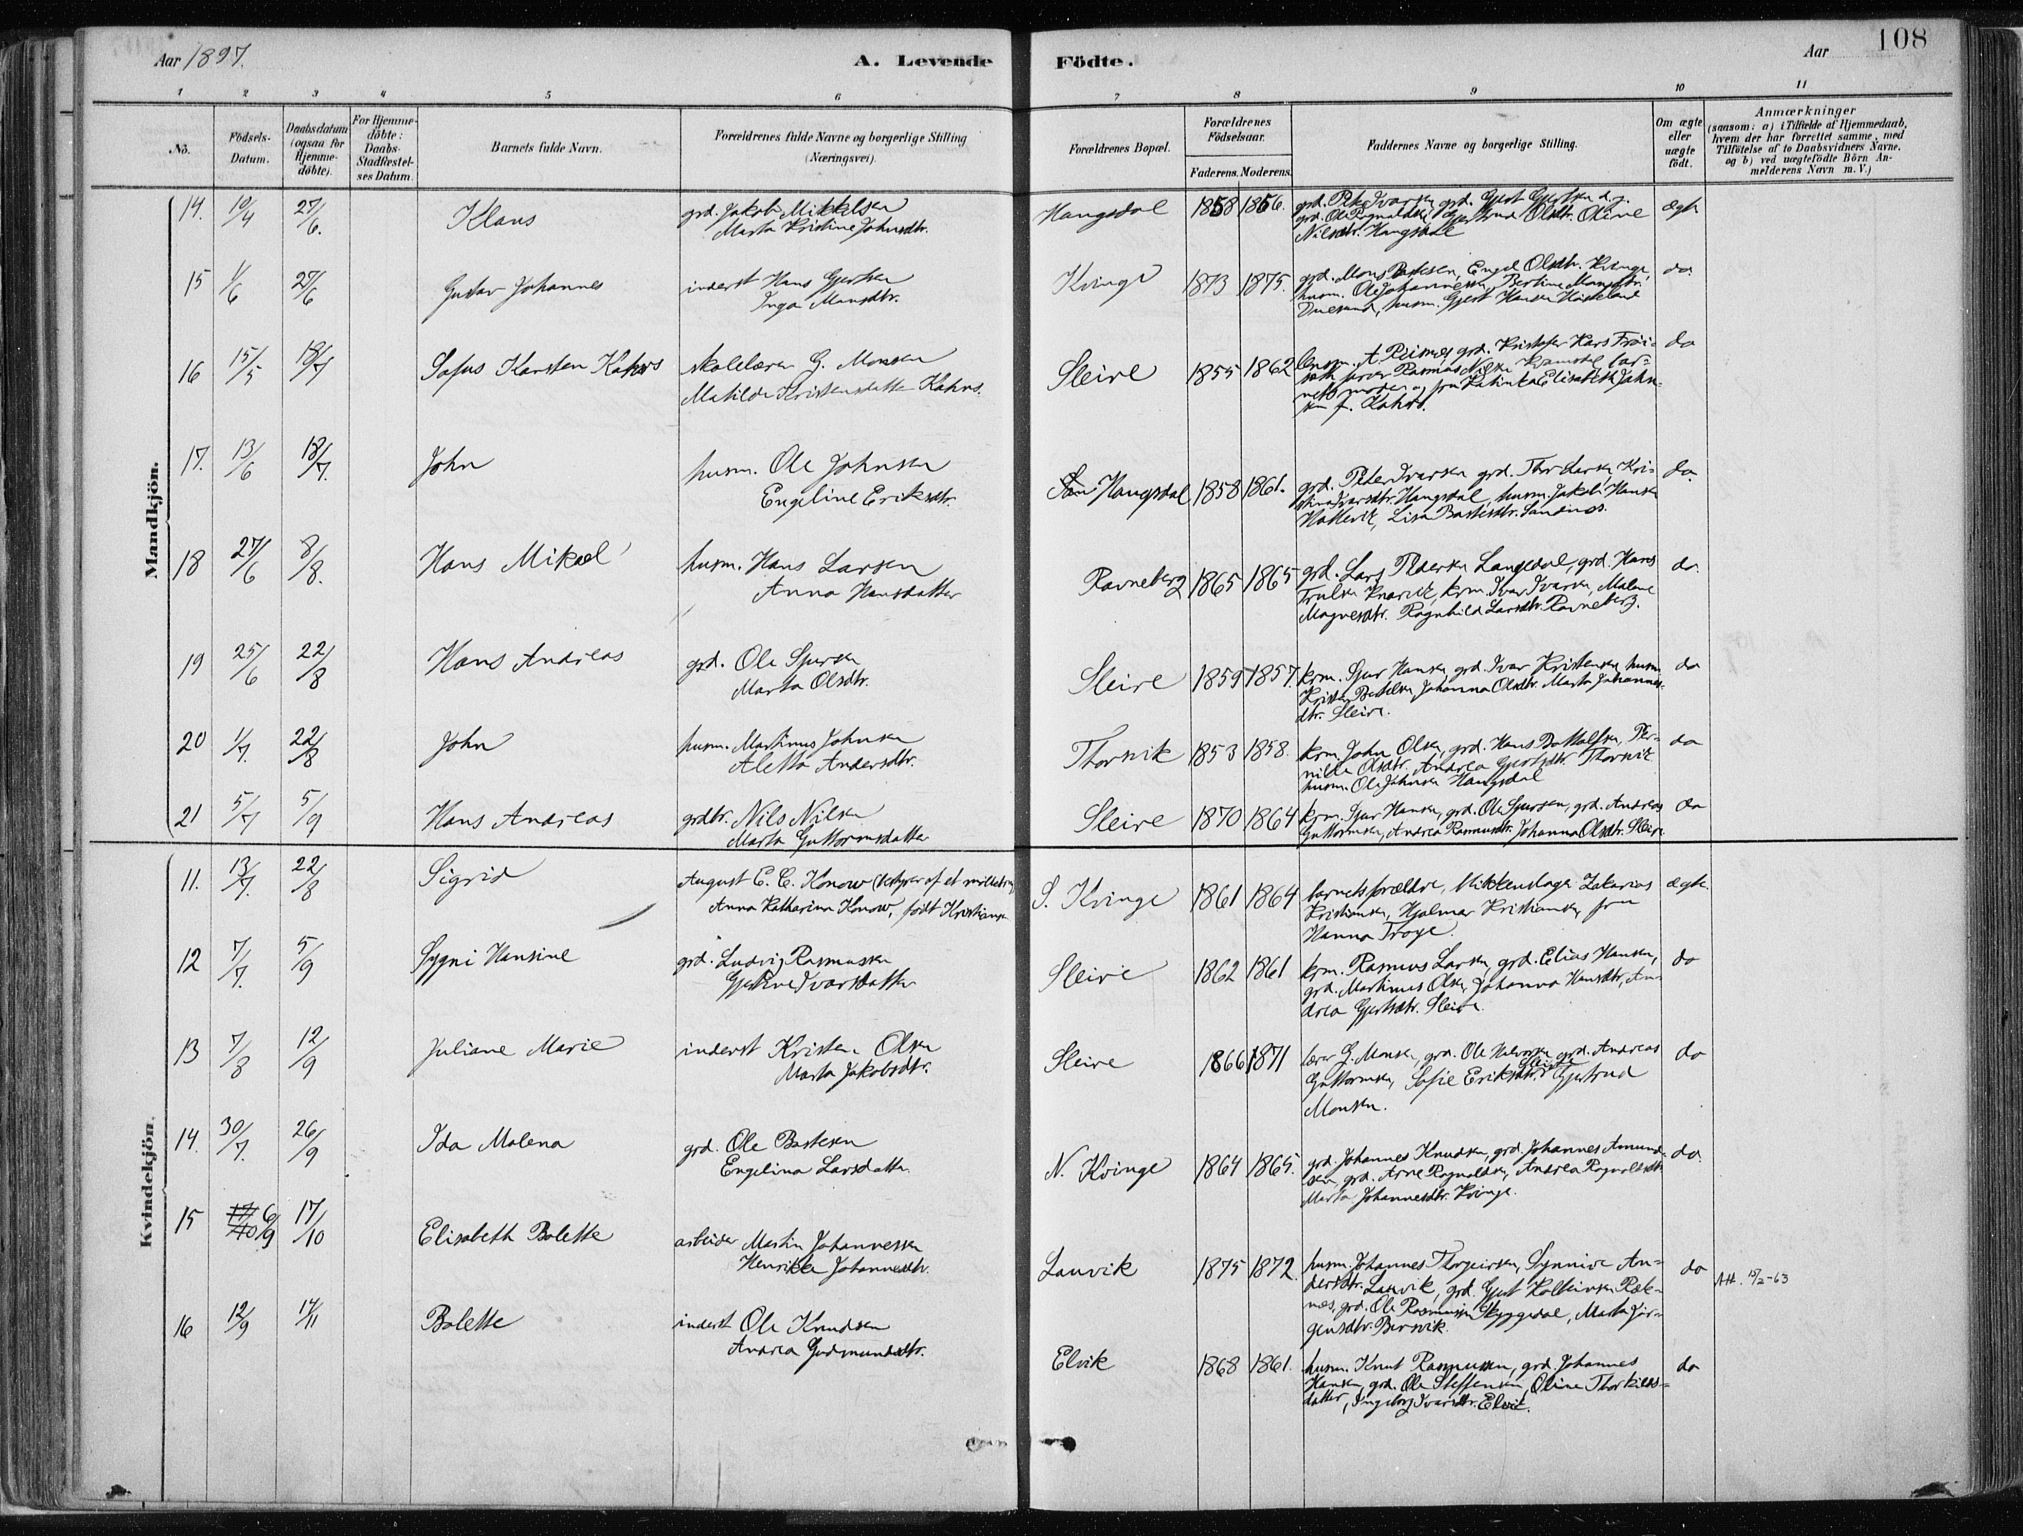 Aar 1897.
A. Levende
Födte.
Aar
108
1 2 3 4 5 6 7 8 9 10 11
No.
Födsels-
Datum.
Daabsdatum
(ogsaa for
Hjemme-
döbte).
For Hjemme-
döbte:
Daabs-
Stadfæstel-
ses Datum.
Barnets fulde Navn.
Forældrenes fulde Navne og borgerlige Stilling
(Næringsvei).
Forældrenes Bopæl.
Forældrenes
Födselsaar.
Faderens. Moderens.
Faddernes Navne og borgerlige Stilling.
Om ægte
eller
uægte
födt.
Anmærkninger
(saasom: a) i Tilfælde af Hjemmedaab,
hvem der har forrettet samme, med
Tilföielse af to Daabsvidners Navne,
og b) ved uægtefödte Börn An-
melderens Navn m. V.)
Mandkjön.
14. 10/4 27/6. Klaus
grd. Jakob Mikkelsen
Marta Kristine Johnsdtr.
Haugsdal 1858 1856.
grd. Peter Ivarsen grd. Gjert Gjertsen d.y.
grd. Ole Rognaldsen Gjertrud Olsdtr. Oline
Nilsdtr. Haugsdal
ægte
15 1/6 27/6 Gustav Johannes
inderst Hans Gjertsen
Inga Monsdtr.
Kvinge 1873 1875.
grd. Mons Bastesen, Engel Olsdtr. Kvinge,
husm. Ole Johannessen, Bertine Monsdtr.
Duesund, husm. Gjert Hansen
do
16 15/5 18/7 Sofus Karsten Kahrs
skolelærer G. Monsen
Matilde Kristensdatter Kahrs.
Sleire 1855 1862
lensm. A. Riisnes grd. Kristofer Kars
Rasmus Nilsen bar-
nets moder og fru Katinka Elisabeth John-
sen f. Kahrs.
do
17. 13/6 18/7. John
husm. Ole Johnsen
Engeline Eriksdtr.
Haugsdal 1858 1861.
grd. Peter Ivarsen grd. Thor Larsen, Kri-
stina Ivarsdtr. Haugsdal, husm. Jakob Hansen
Hattevik, Lisa Bastesdtr. Sandnes.
do.
18 27/6 8/8. Hans Mikael
husm. Hans Larsen
Anna Hansdatter
Ravneberg 1865 1865
grd. Lars Pedersen Langedal, grd. Hans
Trulsen Knarvik, krm. Ivar Ivarsen, Malene
Magnesdtr. Ragnhild Larsdtr. Ravneberg.
do.
19 25/6 22/8 Hans Andreas
grd. Ole Sjursen
Marta Olsdtr.
Sleire 1859 1857.
krm. Sjur Hansen, grd. Ivar Kristensen, husm
Kristen Johanna Olsdtr. Marta Johannes-
dtr. Sleire.
do
20 1/7. 22/8 John
husm. Martinus Johnsen
Aletta Andersdtr.
Thorsvik 1853 1858.
krm. John Olsen, grd. Hans Bottolfsen, Per-
nille Olsdtr. Andrea Gjertsdtr. Thorsvik
husm. Ole Johnsen Haugsdal
do
21 5/7 5/9 Hans Andreas
grdbr. Nils Nilsen
Marta Guttormsdatter
Sleire 1870 1864
krm. Sjur Hansen, grd. Ole Sjursen, grd. Andreas
Guttormsen, Andrea Rasmusdtr. Johanna Olsdtr. Sleire
do
Kvindekjön.
11. 13/7. 22/8 Sigrid
August C. C. Konow (bestyrer af et
Anna Katharina Konow, født Kristiansen
S. Kvinge 1861 1864
barnets forældre, blikkenslager Zakarias
Kristiansen, Hjalmar Kristiansen, fru
Hanna Troye.
ægte.
12 7/7. 5/9 Sygni Hansine
grd. Ludvig Rasmussen
Gjertine Ivarsdatter
Sleire 1862 1861
krm. Rasmus Larsen, grd. Elias Hansen,
grd. Martinus Olsen, Johanna Hansdtr, An-
drea Gjertsdtr. Sleire.
do
13 7/8 12/9 Juliane Marie
inderst Kristen Olsen
Marta Jakobsdtr.
Sleire 1866 1871
lærer G. Monsen, grd. Ole Halvorsen grd. Andreas
Guttormsen, Sofie Eriksdtr. Sleire Gjertrud
Monsen.
do
14. 30/7. 26/9 Ida Malena
grd. Ole Bastesen
Engelina Larsdatter
N. Kvinge 1864 1865.
grd. Johannes Knudsen, grd Johannes Amund-
sen, grd. Arne Rognaldsen, Andrea Rognaldsdtr
Marta Johannesdtr. Kvinge.
do.
15 6/9 17/10 Elisabeth Bolette
arbeider Martin Johannessen
Henrikke Johannesdtr.
Lauvik 1875 1872.
husm. Johannes Thorgeirsen, Synnive An-
dersdtr. Lauvik, grd. Gjert Kolbeinsen Røk-
nes, grd. Ole Rasmussen Skyggedal, Marta Jør-
gensdtr. Bersvik.
do
Att. 15/2-63
16 12/9 14/11 Bolette
inderst Ole Knudsen
Andrea Gudmundsdtr.
Elvik 1868 1861.
husm. Knut Rasmussen, grd. Johannes
Hansen, grd. Ole Steffensen, Oline Thorkilds-
datter, Ingeborg Ivarsdtr. Elvik.
do